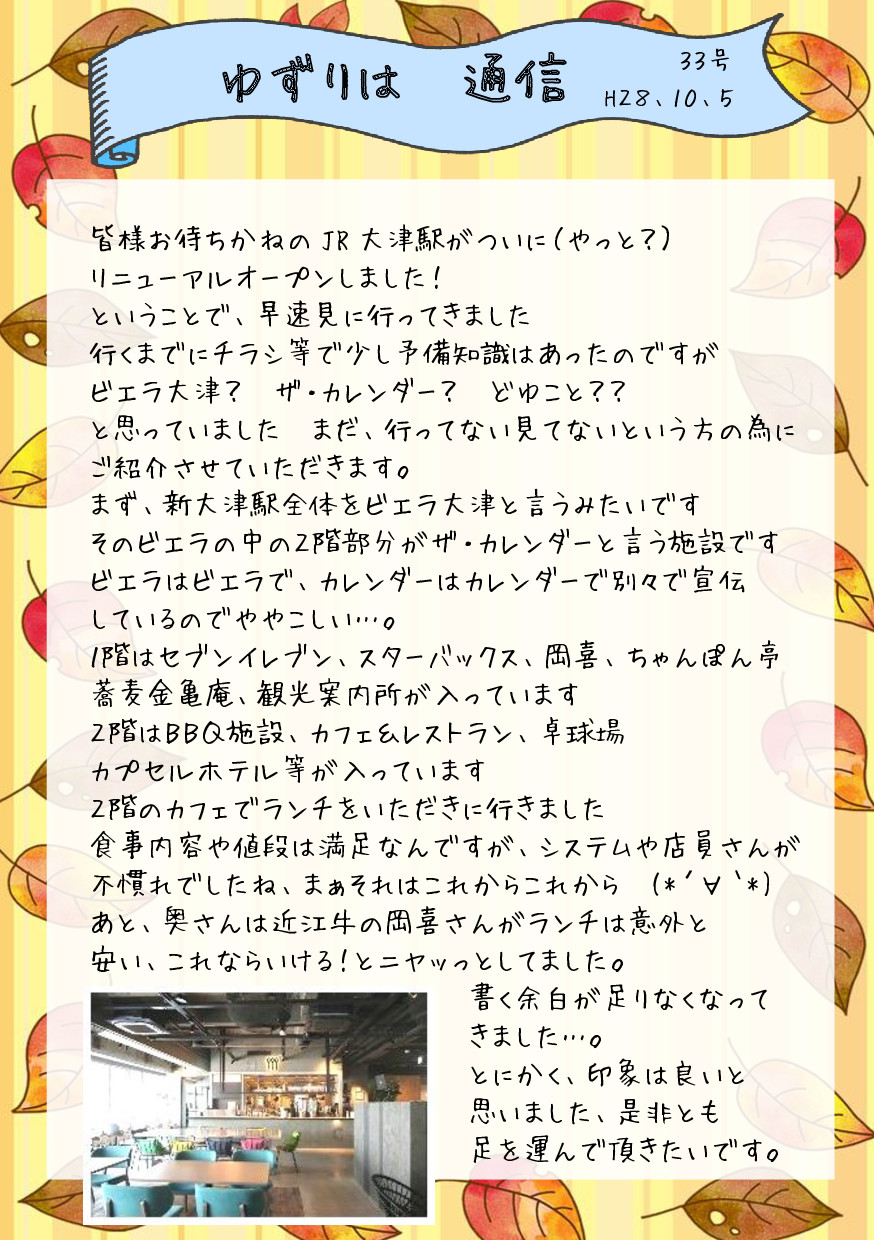 ゆずりは 通信
33号
H28、10、5
皆様お待ちかねのJR大津駅がついに（やっと？）
リニューアルオープンしました！
ということで、早速見に行ってきました
行くまでにチラシ等で少し予備知識はあったのですが
ビエラ大津？　ザ・カレンダー？　どゆこと？？
と思っていました　まだ、行ってない見てないという方の為に
ご紹介させていただきます。
まず、新大津駅全体をビエラ大津と言うみたいです
そのビエラの中の2階部分がザ・カレンダーと言う施設です
ビエラはビエラで、カレンダーはカレンダーで別々で宣伝
しているのでややこしい…。
1階はセブンイレブン、スターバックス、岡喜、ちゃんぽん亭
蕎麦金亀庵、観光案内所が入っています
2階はBBQ施設、カフェ&レストラン、卓球場
カプセルホテル等が入っています
2階のカフェでランチをいただきに行きました
食事内容や値段は満足なんですが、システムや店員さんが
不慣れでしたね、まぁそれはこれからこれから　(*´∀｀*)
あと、奥さんは近江牛の岡喜さんがランチは意外と
安い、これならいける！とニヤッっとしてました。
書く余白が足りなくなって
きました…。
とにかく、印象は良いと
思いました、是非とも
足を運んで頂きたいです。